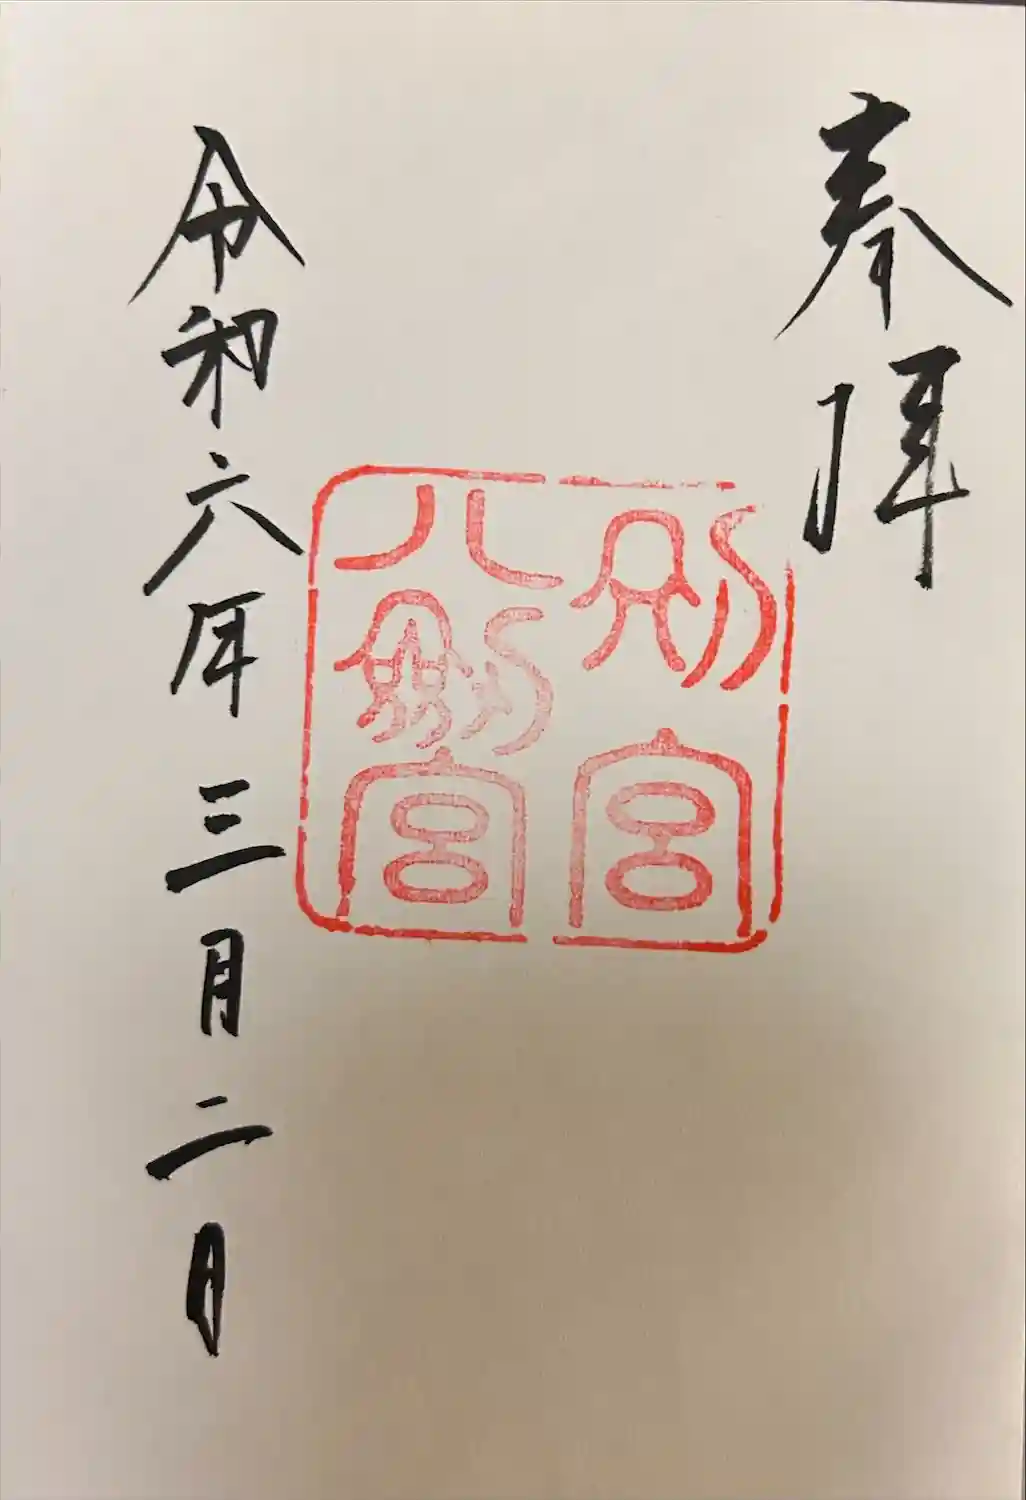 奉拝
別宮
八劔宮
令和六年三月二日